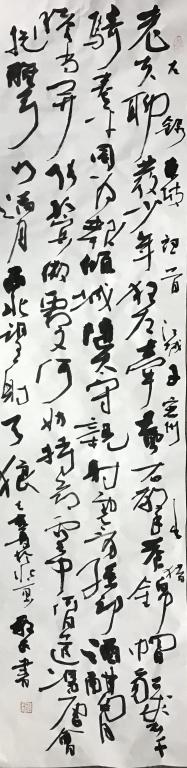 老夫聊發少年狂左牽黃右擎蒼錦帽貂裘千
騎卷平岡為報傾城隨太守親射虎看孫郎酒酣胸
膽尚開張鬢微霜又何妨持節雲中何日遣馮唐會
挽雕弓如滿月西北望射天狼
書
右錄東坡詞一首江城子密州出獵